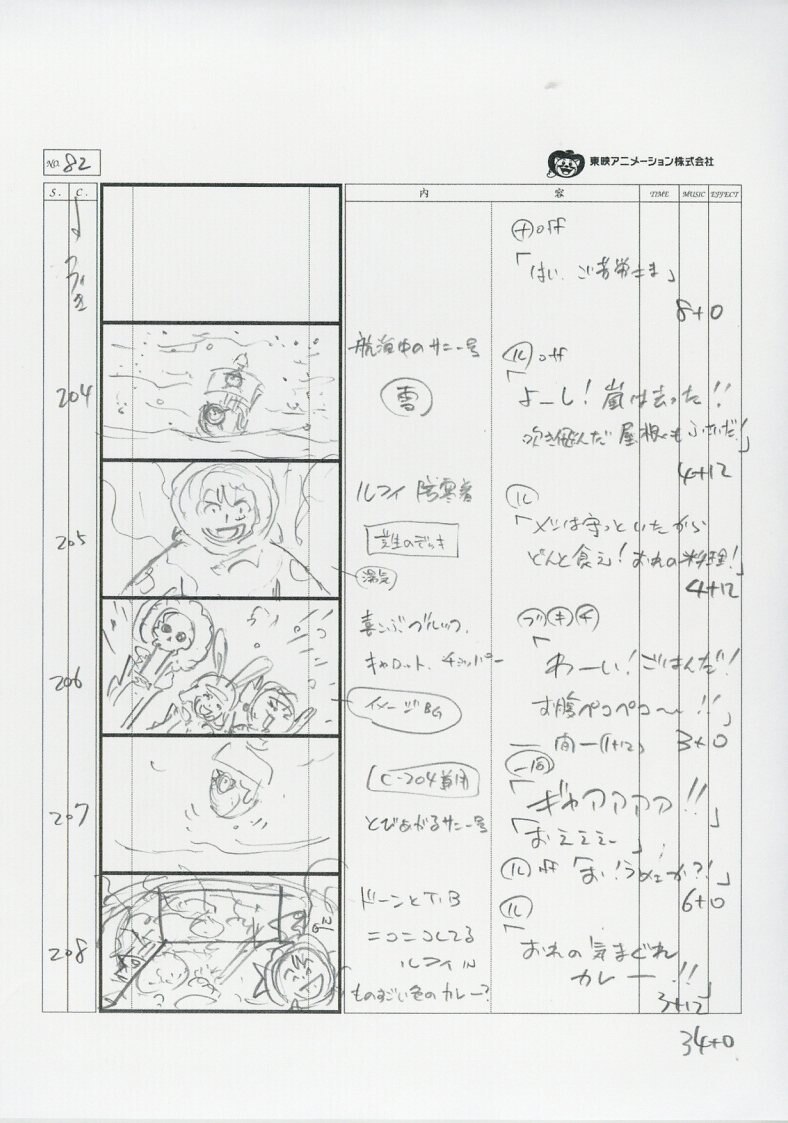 NO. 82
東映アニメーション株式会社
S. C. 内 容 TIME MUSIC EFFECT
つづき
ナ off
「はい、ご苦労さま」
8+0
204
航海中のサニー号
雪
ル off
「よーし!嵐は去った!!
吹き飛んだ屋根もふさいだ!」
4+12
205
ルフィ 防寒着
芝生のデッキ
湯気
ル
「メシは守っといたから
どんと食え!おれの料理!」
4+12
206
喜ぶブルック、
キャロット、チョッパー
イメージBG
ブ キ チ
「わーい!ごはんだ!
お腹ペコペコ〜!!」
— 間 — (1+12)
3+0
207
C-204兼用
とびあがるサニー号
一同
「ギャアアアア!!」
「おえええー」
ル off「お!うめェか?!」
6+0
208
ドーンとT.B
ニコニコしてる
ルフィ IN
ものすごい色のカレー?
ル
「おれの気まぐれ
カレー!!」
3+12
34+0